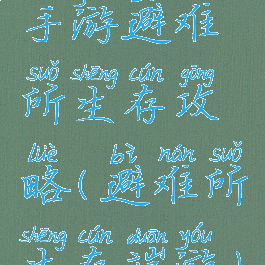 手游避难
suǒ shēng cún gōng
所生存攻
lüè bì nán suǒ
略(避难所
shēng cún duān yóu